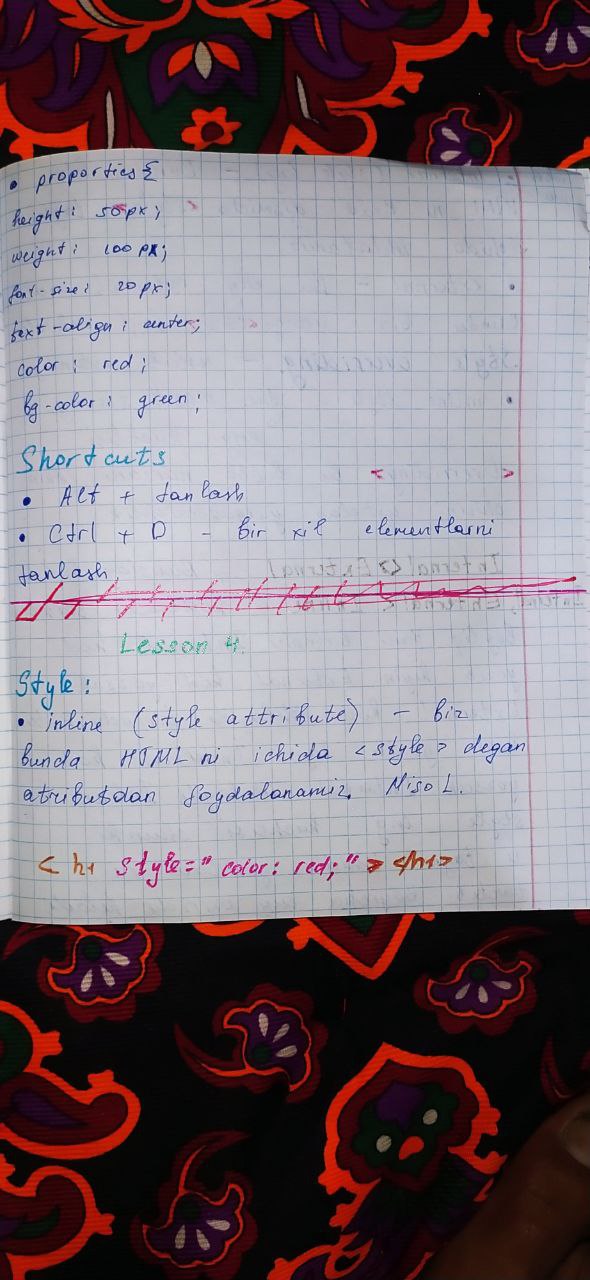 • proporties{
height: 50px;
weight: 100px;
font-size: 20px;
text-align: center;
color: red;
bg-color: green;
Shortcuts
• Alt + tanlash
< >
• Ctrl + D - Bir xil elementlarni
tanlash
Lesson 4
Style:
• inline (style attribute) - Biz
bunda HTML ni ichida <style> degan
atributdan foydalanamiz. Misol.
<h1 style="color: red;"></h1>